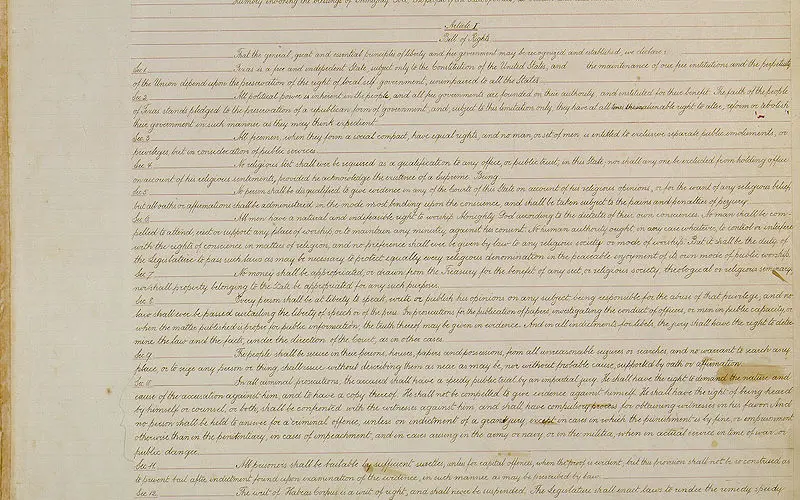 humbly invoking the blessings of Almighty God, the people of the State of Texas, do ordain and
Article I
Bill of Rights
That the general, great and essential principles of liberty and free government may be recognized and established, we declare:
Sec 1 Texas is a free and independent State, subject only to the Constitution of the United States, and the maintenance of our free institutions and the perpetuity
of the Union depend upon the preservation of the right of local self government, unimpaired to all the States.
Sec 2 All political power is inherent in the people, and all free governments are founded on their authority, and instituted for their benefit. The faith of the people
of Texas stands pledged to the preservation of a republican form of government, and, subject to this limitation only, they have at all times the inalienable right to alter, reform or abolish
their government in such manner as they may think expedient.
Sec 3 All freemen, when they form a social compact, have equal rights, and no man, or set of men, is entitled to exclusive separate public emoluments, or
privileges, but in consideration of public services.
Sec 4 No religious test shall ever be required as a qualification to any office, or public trust, in this State; nor shall any one be excluded from holding office
on account of his religious sentiments, provided he acknowledge the existence of a Supreme Being.
Sec 5 No person shall be disqualified to give evidence in any of the Courts of this State on account of his religious opinions, or for the want of any religious belief,
but all oaths or affirmations shall be administered in the mode most binding upon the conscience, and shall be taken subject to the pains and penalties of perjury.
Sec 6 All men have a natural and indefeasible right to worship Almighty God according to the dictates of their own consciences. No man shall be com-
pelled to attend, erect or support any place of worship, or to maintain any ministry against his consent. No human authority ought, in any case whatever, to control or interfere
with the rights of conscience in matters of religion, and no preference shall ever be given by law to any religious society or mode of worship. But it shall be the duty of
the Legislature to pass such laws as may be necessary to protect equally every religious denomination in the peaceable enjoyment of its own mode of public worship.
Sec 7 No money shall be appropriated, or drawn from the Treasury for the benefit of any sect, or religious society, theological or religious seminary,
nor shall property belonging to the State be appropriated for any such purposes.
Sec 8 Every person shall be at liberty to speak, write or publish his opinions on any subject, being responsible for the abuse of that privilege; and no
law shall ever be passed curtailing the liberty of speech or of the press. In prosecutions for the publication of papers, investigating the conduct of officers, or men in public capacity, or
when the matter published is proper for public information, the truth thereof may be given in evidence. And in all indictments for libels, the jury shall have the right to deter-
mine the law and the facts, under the direction of the Court, as in other cases.
Sec 9 The people shall be secure in their persons, houses, papers and possessions, from all unreasonable seizures or searches, and no warrant to search any
place, or to seize any person or thing, shall issue without describing them as near as may be, nor without probable cause, supported by oath or affirmation.
Sec 10 In all criminal prosecutions, the accused shall have a speedy public trial by an impartial jury. He shall have the right to demand the nature and
cause of the accusation against him, and to have a copy thereof. He shall not be compelled to give evidence against himself. He shall have the right of being heard
by himself or counsel, or both; shall be confronted with the witnesses against him and shall have compulsory process for obtaining witnesses in his favor. And
no person shall be held to answer for a criminal offence, unless on indictment of a grand jury, except in cases in which the punishment is by fine, or imprisonment
otherwise than in the penitentiary, in cases of impeachment, and in cases arising in the army or navy, or in the militia, when in actual service in time of war or
public danger.
Sec 11 All prisoners shall be bailable by sufficient sureties, unless for capital offences, when the proof is evident; but this provision shall not be so construed as
to prevent bail after indictment found upon examination of the evidence, in such manner as may be prescribed by law.
Sec 12 The writ of Habeas Corpus is a writ of right, and shall never be suspended. The Legislature shall enact laws to render the remedy speedy